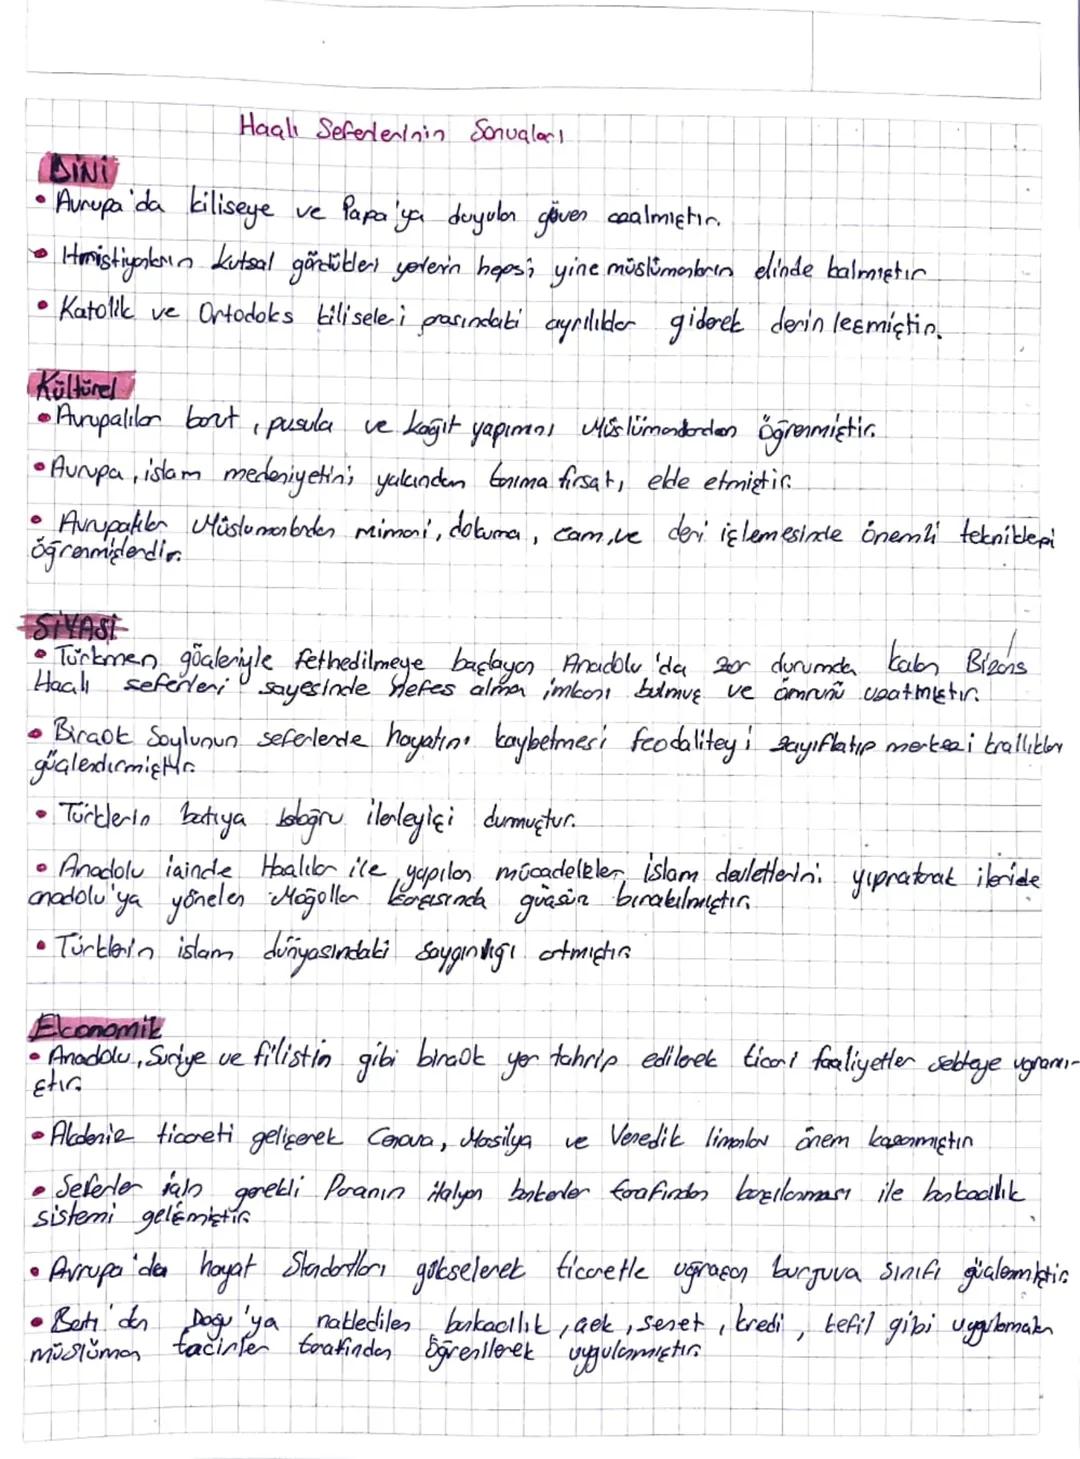 Haçlı Seferlerinin Sonuçları
DİNİ
• Avrupa'da kiliseye ve Papa'ya duyulan güven azalmıştır.
• Hristiyanların kutsal gördükleri yerlerin hepsi yine müslümanların elinde kalmıştır
• Katolik ve Ortodoks kiliseleri arasındaki ayrılıklar giderek derinleşmiştir.
Kültürel
• Avrupalılar barut, pusula ve kağıt yapımını Müslümanlardan öğrenmiştir.
• Avrupa, islam medeniyetini yakından tanıma fırsatı elde etmiştir.
• Avrupalılar Müslümanlardan mimari, dokuma, cam, ve deri işlemesinde önemli teknikleri
öğrenmişlerdir.
SİYASİ
• Türkmen göçleriyle fethedilmeye başlayan Anadolu'da zor durumda kalan Bizans
Haçlı seferleri sayesinde nefes alma imkanı bulmuş ve ömrünü uzatmıştır.
• Birçok Soylunun seferlerde hayatını kaybetmesi feodaliteyi zayıflatıp merkezi krallıkları
güçlendirmiştir.
• Türklerin batıya doğru ilerleyişi durmuştur.
• Anadolu içinde Haçlılar ile yapılan mücadeleler islam devletlerini yıpratarak ileride
anadolu'ya yönelen Moğollar karşısında güçsüz bırakılmıştır.
• Türklerin islam dünyasındaki saygınlığı artmıştır.
Ekonomik
• Anadolu, Suriye ve filistin gibi birçok yer tahrip edilerek ticari faaliyetler sekteye uğramı-
ştır.
• Akdeniz ticareti gelişerek Cenova, Marsilya ve Venedik limanları önem kazanmıştır
• Seferler için gerekli Paranın italyan bankerler tarafından karşılanması ile bankacılık
sistemi gelişmiştir.
• Avrupa'da hayat Standartları yükselerek ticaretle uğraşan burjuva sınıfı güçlenmiştir.
• Batı'dan Doğu'ya nakledilen bankacılık, çek, senet, kredi, kefil gibi uygulamalar
müslüman tacirler tarafından öğrenilerek uygulanmıştır.